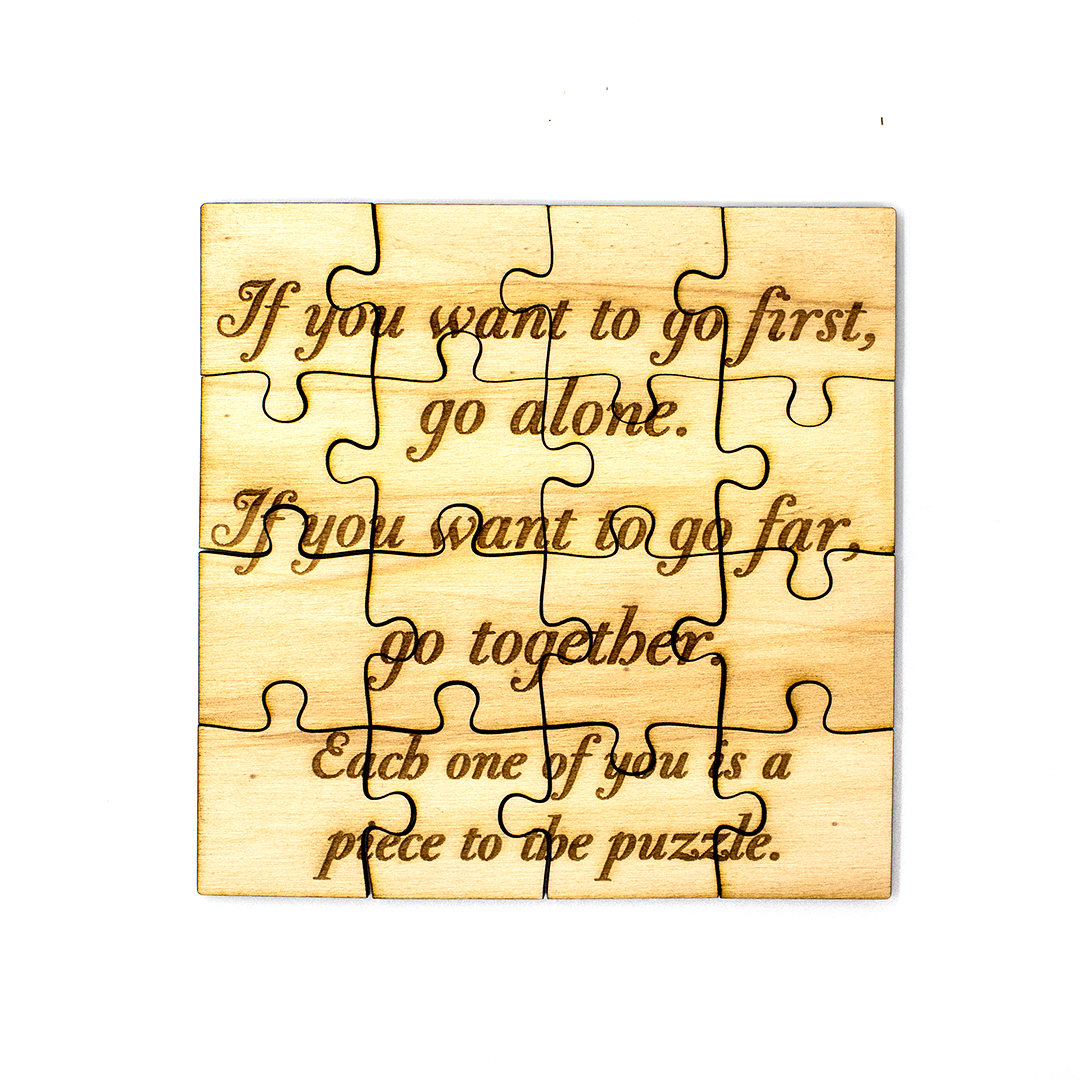 If you want to go first,
go alone.
If you want to go far,
go together.
Each one of you is a
piece to the puzzle.